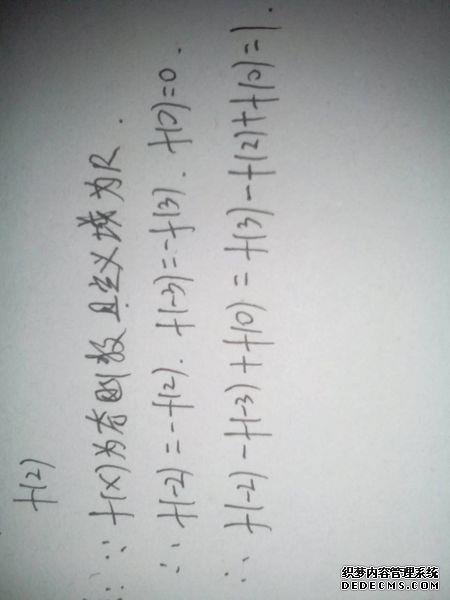 f(2)
∵ f(x)为奇函数且定义域为R.
∴ f(-2)=-f(2). f(-3)=-f(3). f(0)=0.
∴ f(-2)-f(-3)+f(0)=f(3)-f(2)+f(0)=1.
织梦内容管理系统
DEDECMS.COM